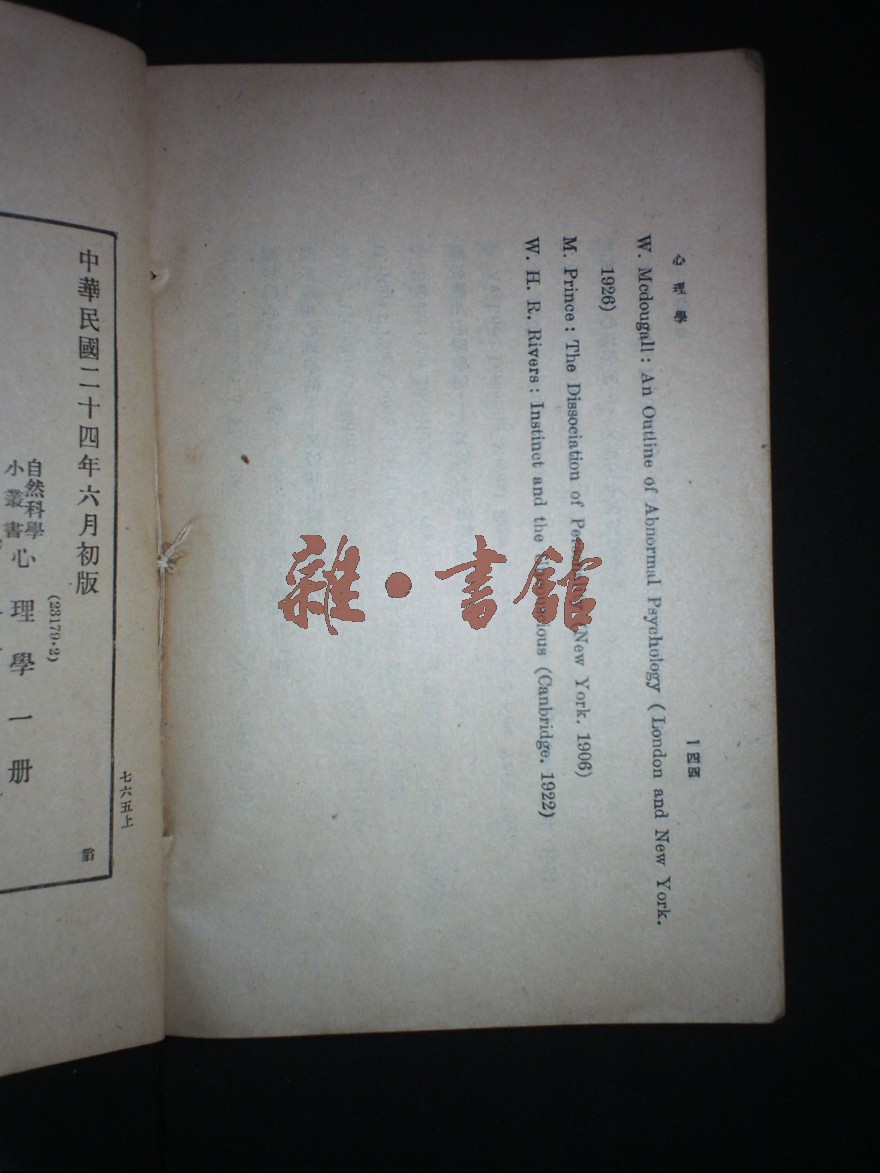 心理學
一四四
W. Mcdougall: An Outline of Abnormal Psychology (London and New York.
1926)
M. Prince: The Dissociation of Personality (New York. 1906)
W. H. R. Rivers: Instinct and the Unconscious (Canbridge. 1922)
雜·書館
七六五上
中華民國二十四年六月初版
(23179·2)
自然科學
小叢書
心理學一册